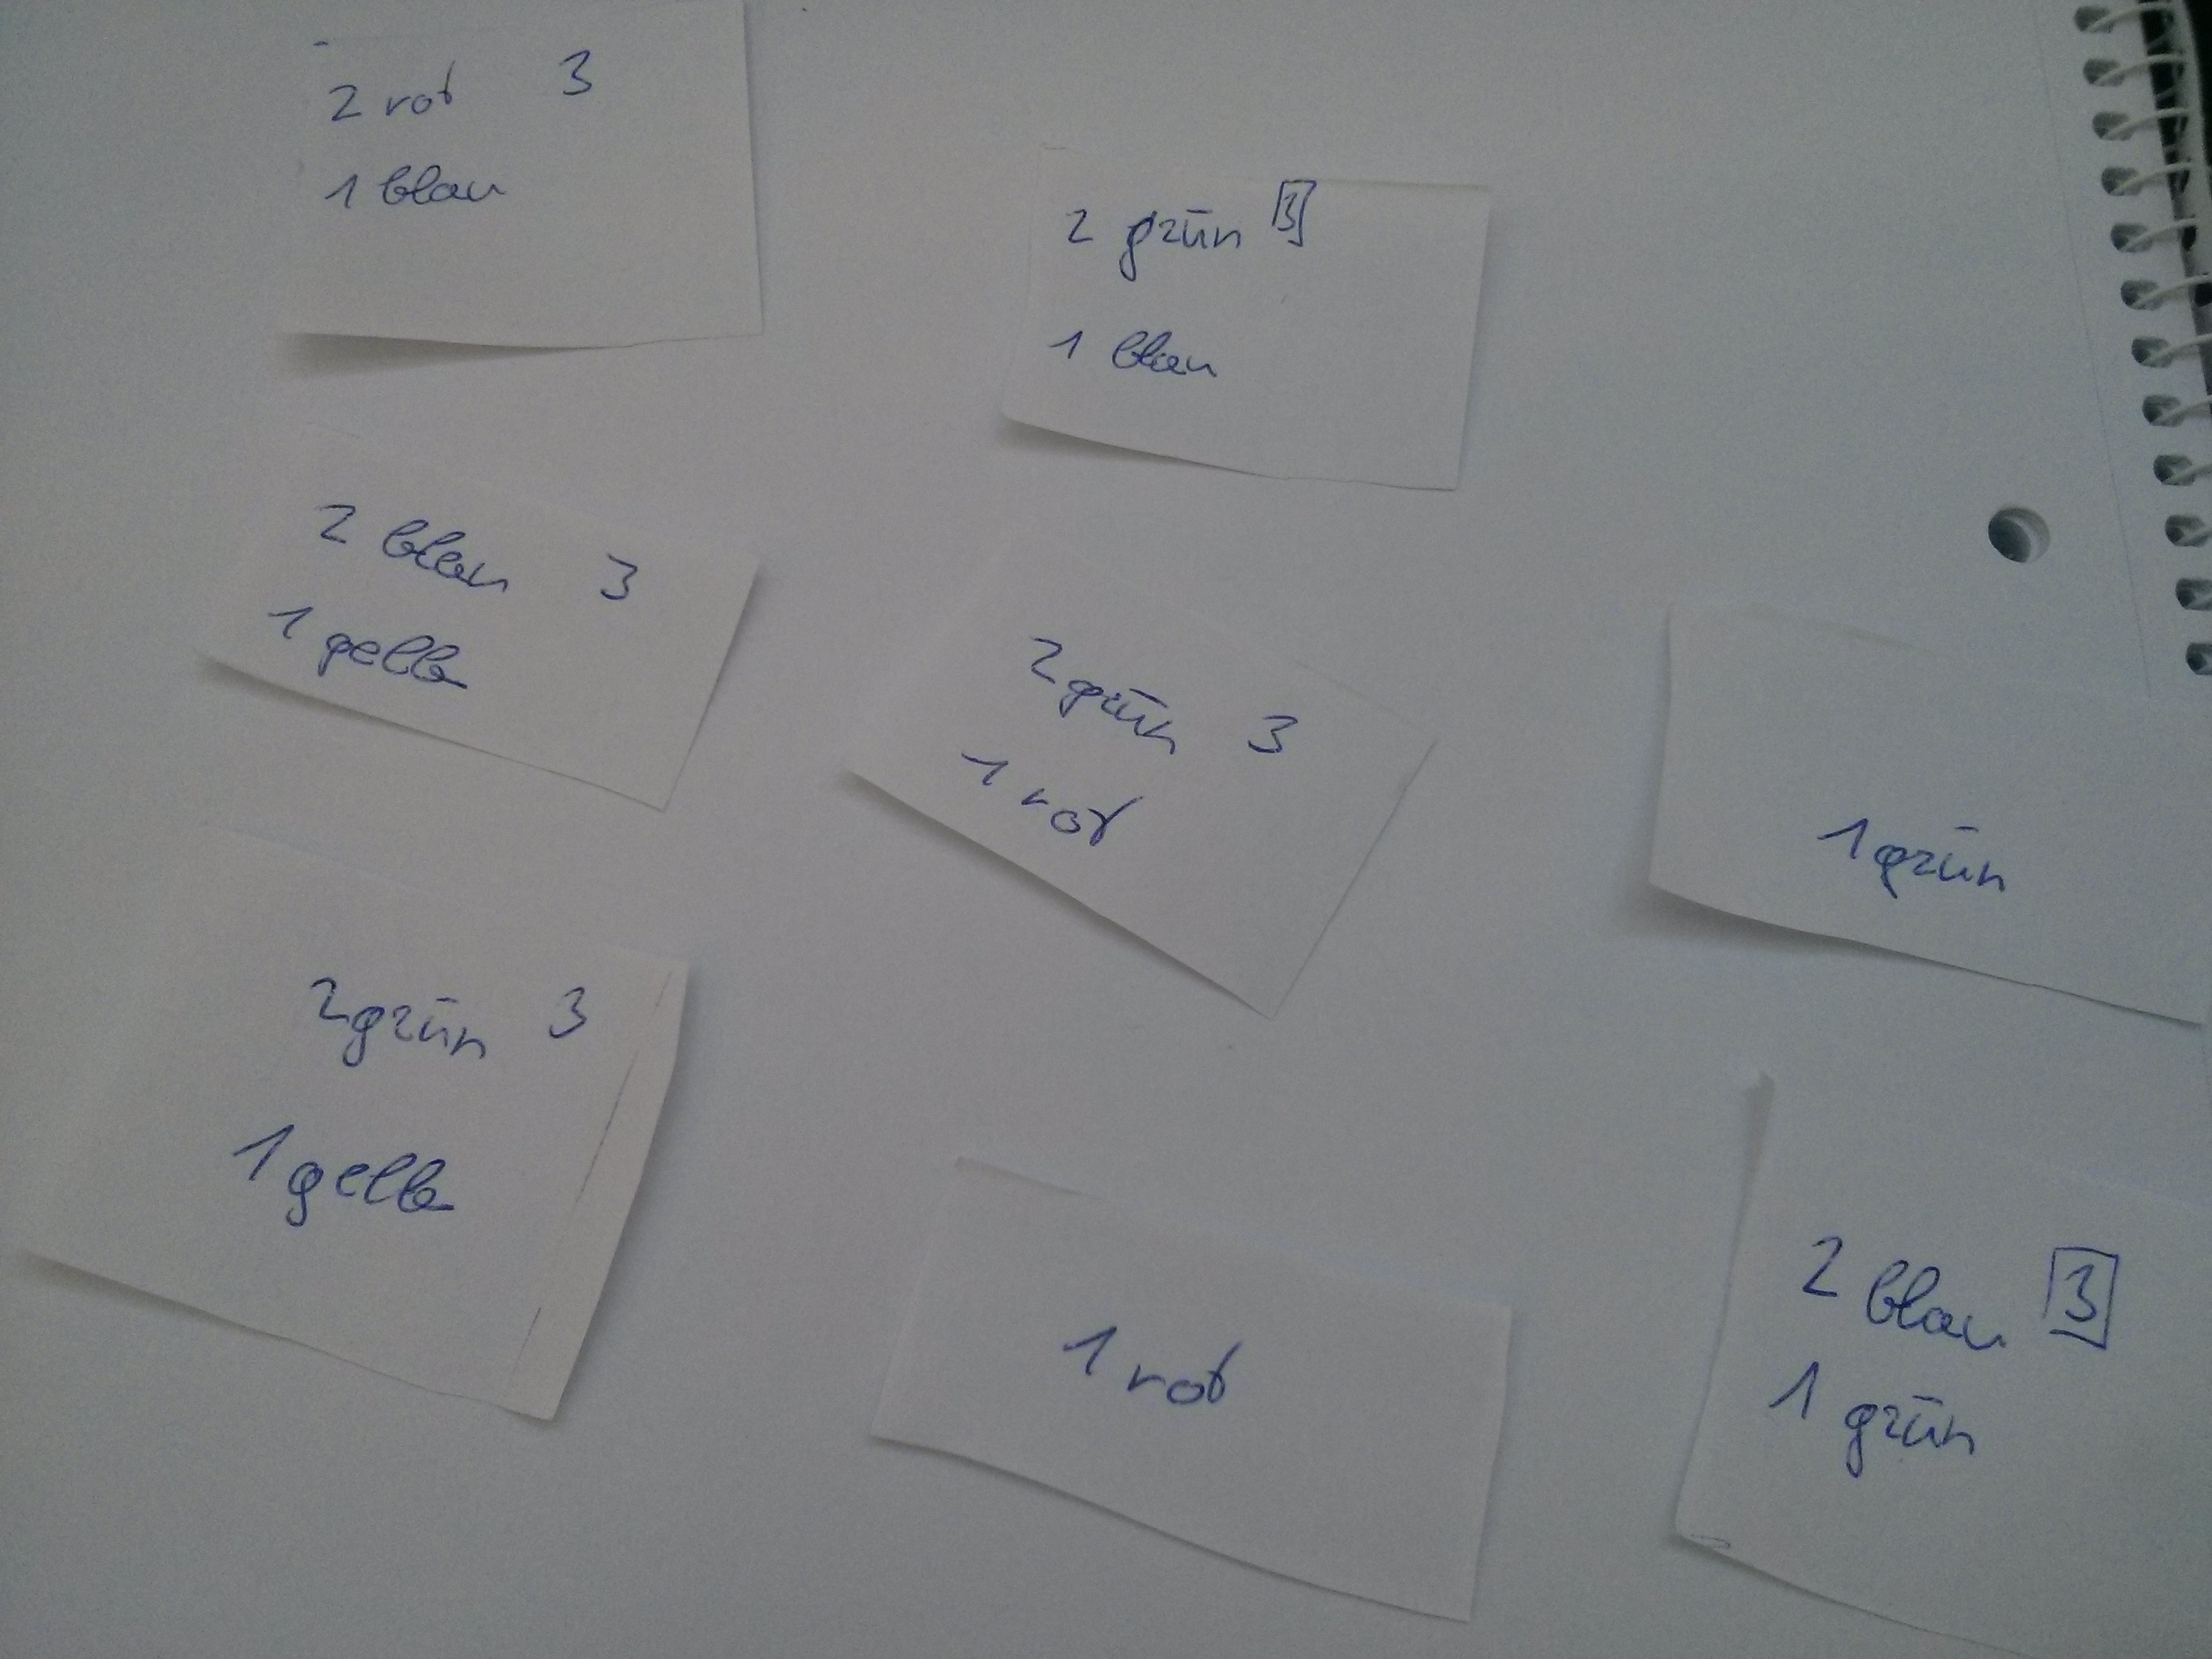 2 rot 3
1 blau
2 grün 3
1 blau
2 blau 3
1 gelb
2 grün 3
1 rot
1 grün
2 grün 3
1 gelb
1 rot
2 blau 3
1 grün